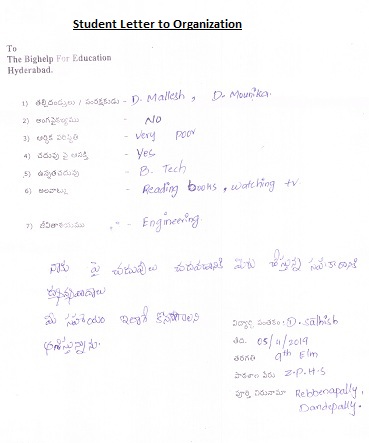 Student Letter to Organization
To
The Bighelp For Education
Hyderabad.
1) తల్లిదండ్రులు / సంరక్షకుడు - D. Mallesh , D. Mounika.
2) అంగవైకల్యము - NO
3) ఆర్థిక పరిస్థితి - very poor
4) చదువు పై ఆసక్తి - Yes
5) ఉన్నతచదువు - B. Tech
6) అలవాట్లు - Reading books, watching tv
7) జీవితాశయము - Engineering
నాకు పై చదువులు చదవడానికి మీరు చేస్తున్న సహకారానికి
మీ సహాయం ఇలాగే కొనసాగాలని
విద్యార్థి సంతకం: D. Sathish
తేది. 05/4/2019
తరగతి 9th E/m
పాఠశాల పేరు Z.P.H.S
పూర్తి చిరునామా Rebbenapally,
Dandepally.